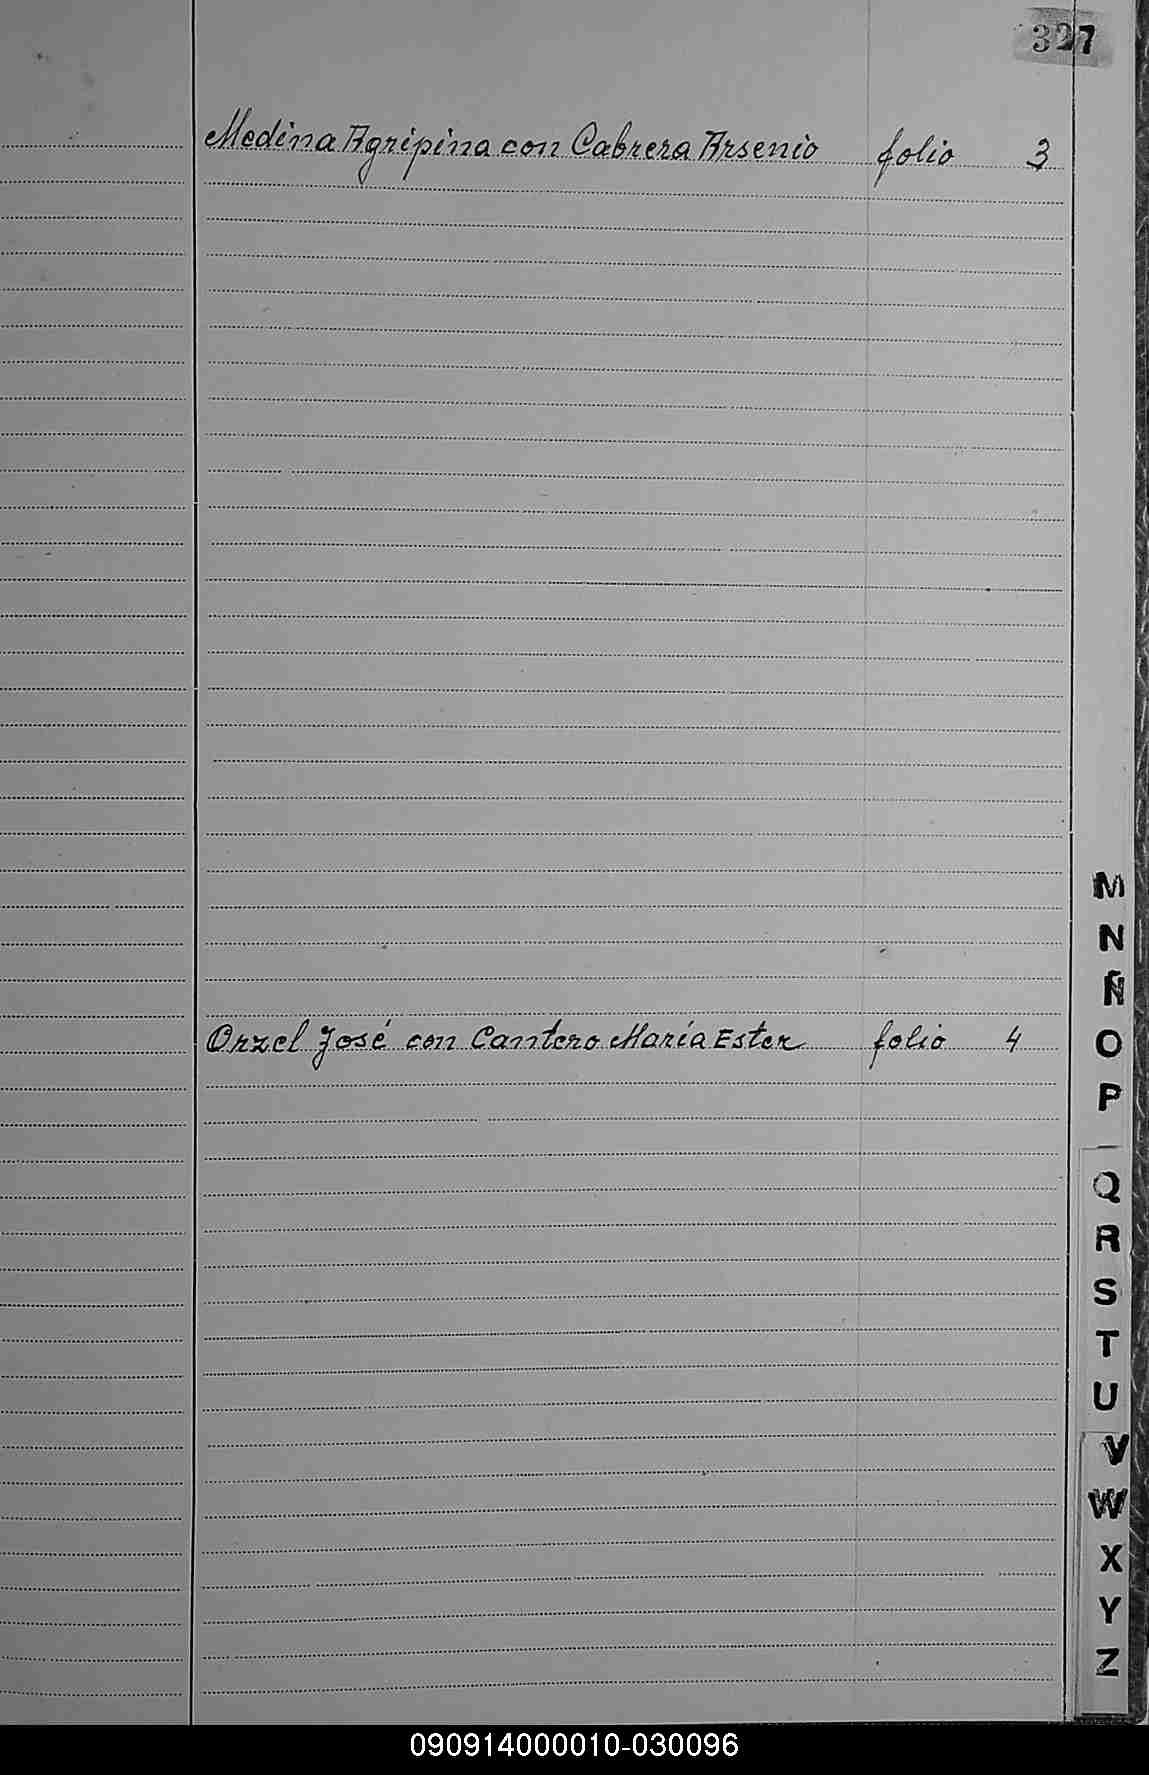 327
Medina Agripina con Cabrera Arsenio folio 3
M
N
Ñ
Orzel José con Cantero María Ester folio 4
O
P
Q
R
S
T
U
V
W
X
Y
Z
090914000010-030096